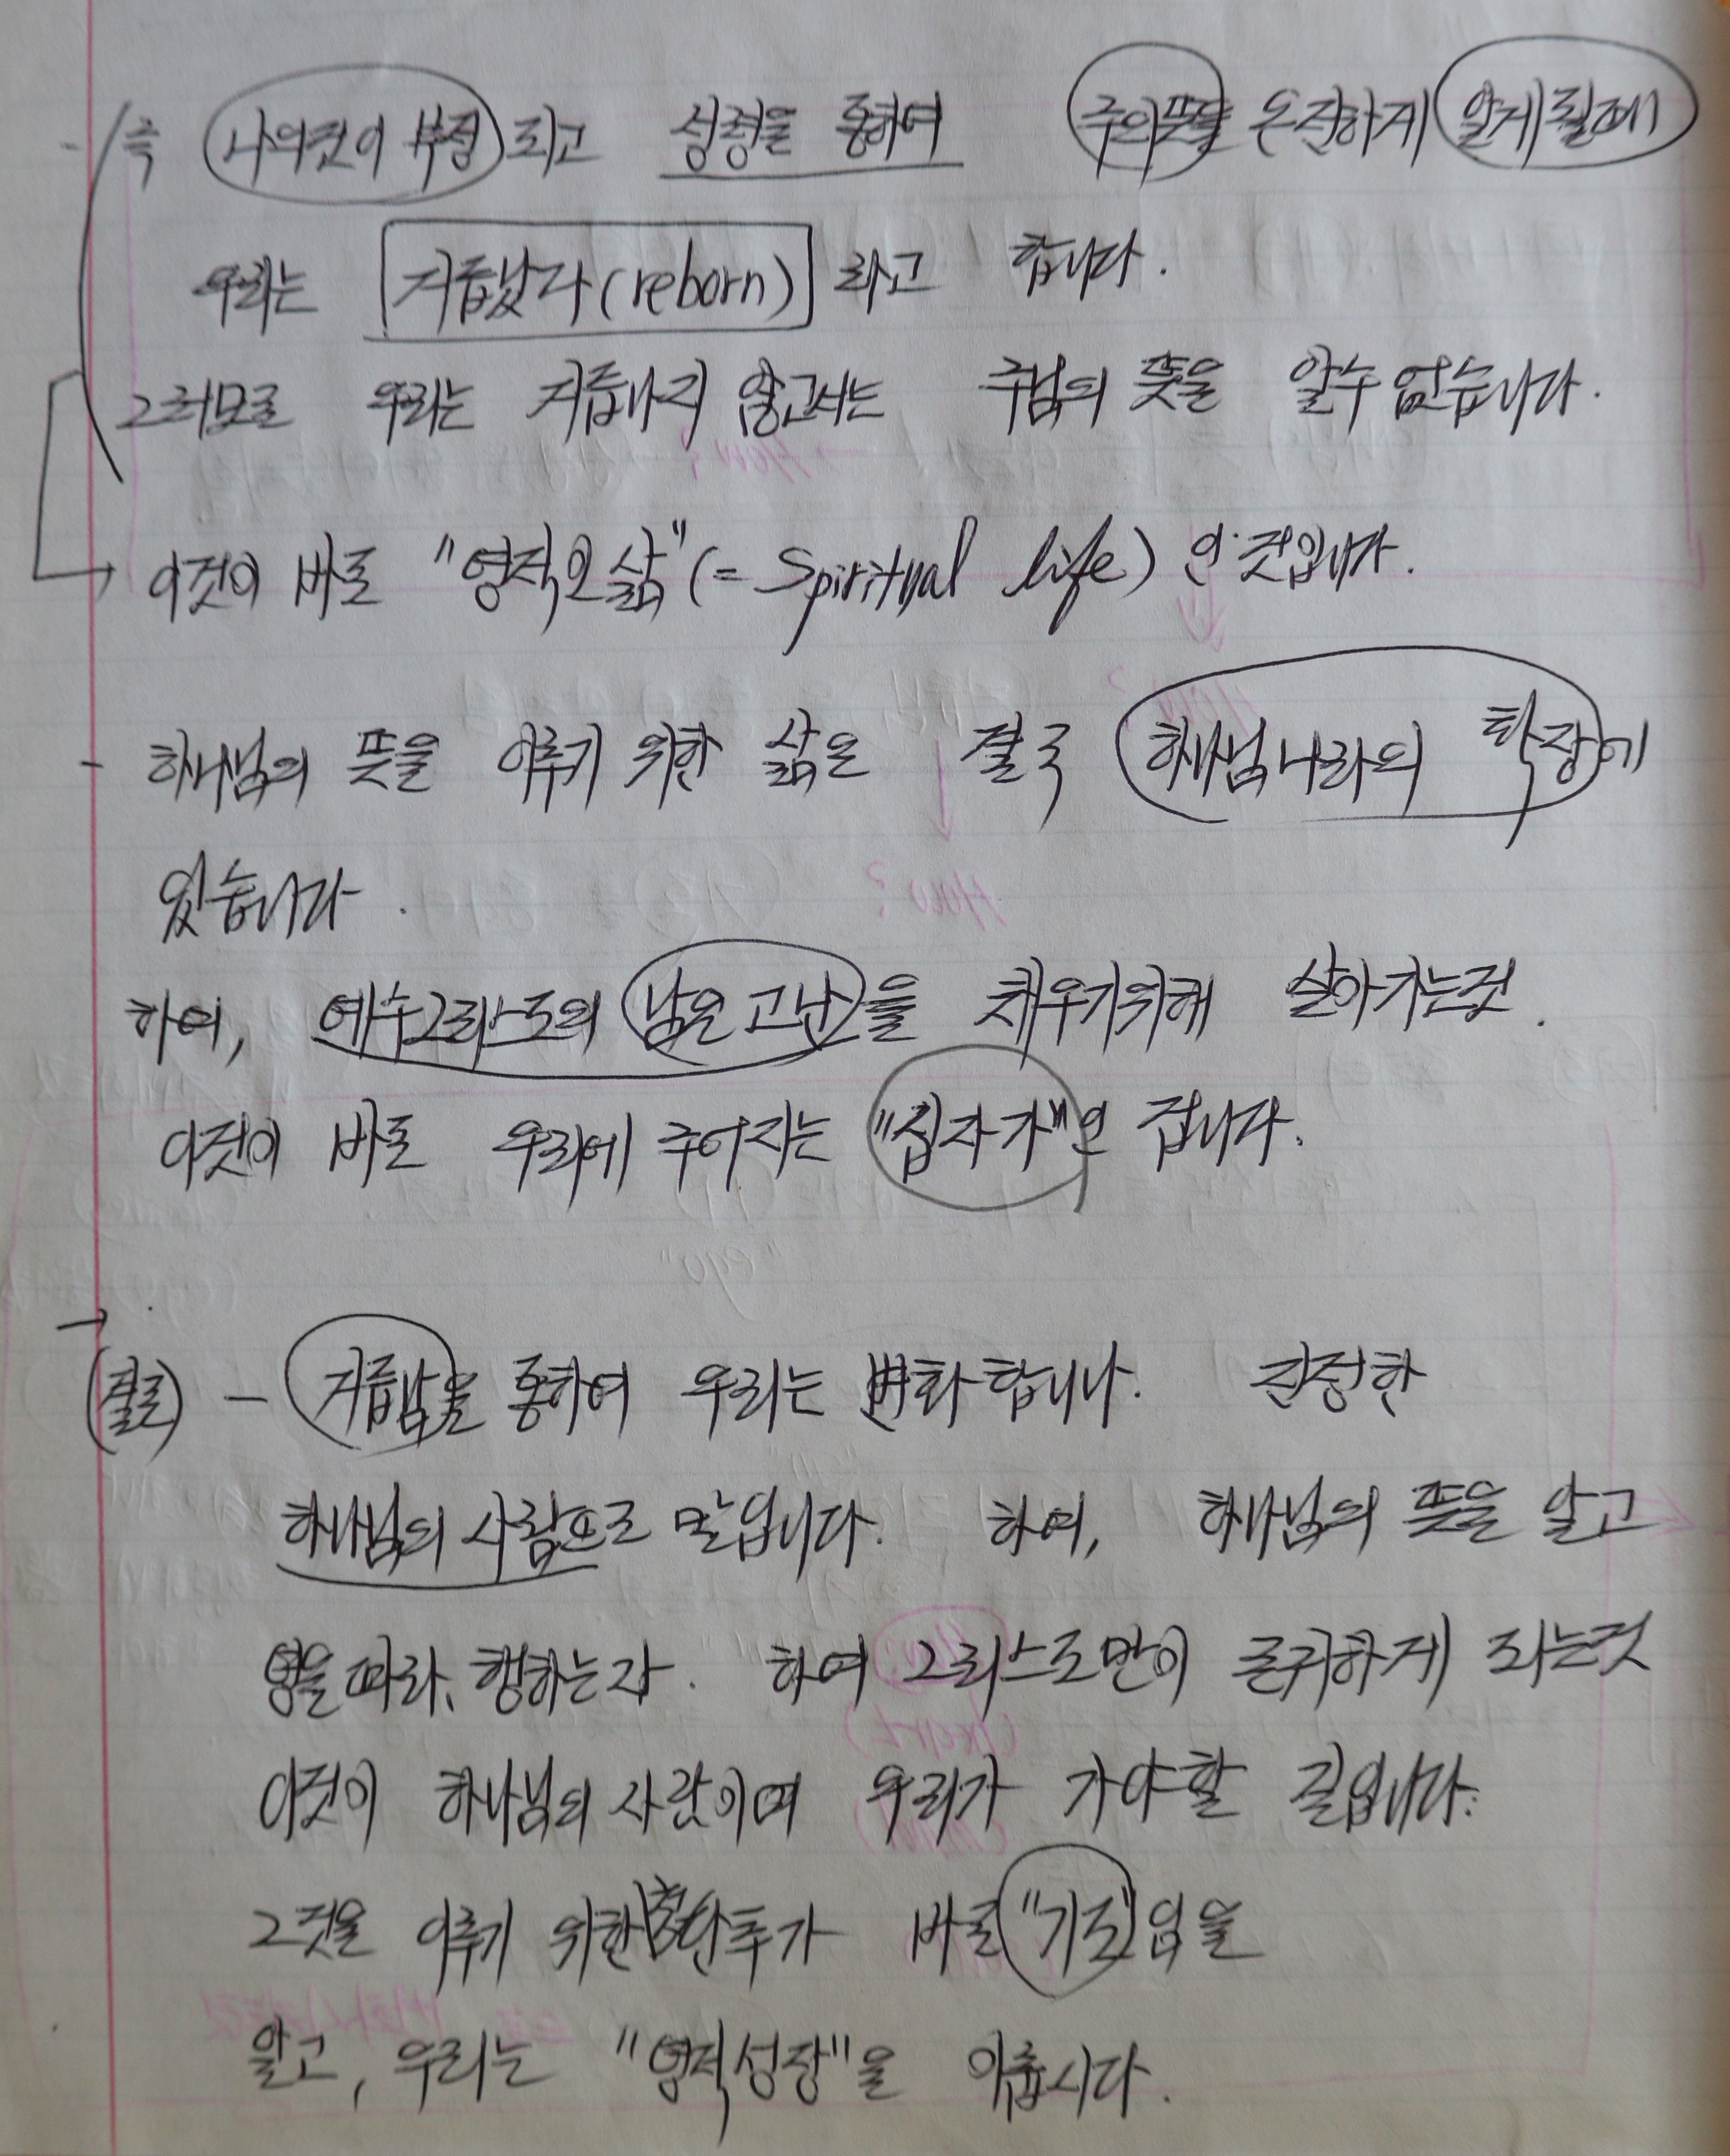 - 즉 나의것이 부정 되고 성령을 통하여 주의뜻을 온전하게 알게될때
우리는 거듭났다(reborn) 라고 합니다.
그러므로 우리는 거듭나지 않고서는 주님의 뜻을 알수 없습니다.
→ 이것이 바로 "영적인 삶" (= Spiritual life) 인 것입니다.
- 하나님의 뜻을 이루기 위한 삶은 결국 하나님나라의 확장에
있습니다.
하여, 예수그리스도의 남은 고난을 채우기위해 살아가는것.
이것이 바로 우리에 주어지는 "십자가"인 겁니다.
→
(결론) - 거듭남을 통하여 우리는 변화 합니다. 진정한
하나님의 사람으로 말입니다. 하여, 하나님의 뜻을 알고
영을 따라, 행하는자. 하여 그리스도만이 존귀하게 되는것
이것이 하나님의 사람이며 우리가 가야할 길입니다.
그것을 이루기 위한 첫단추가 바로 "기도"임을
알고, 우리는 "영적성장"을 이룹시다.